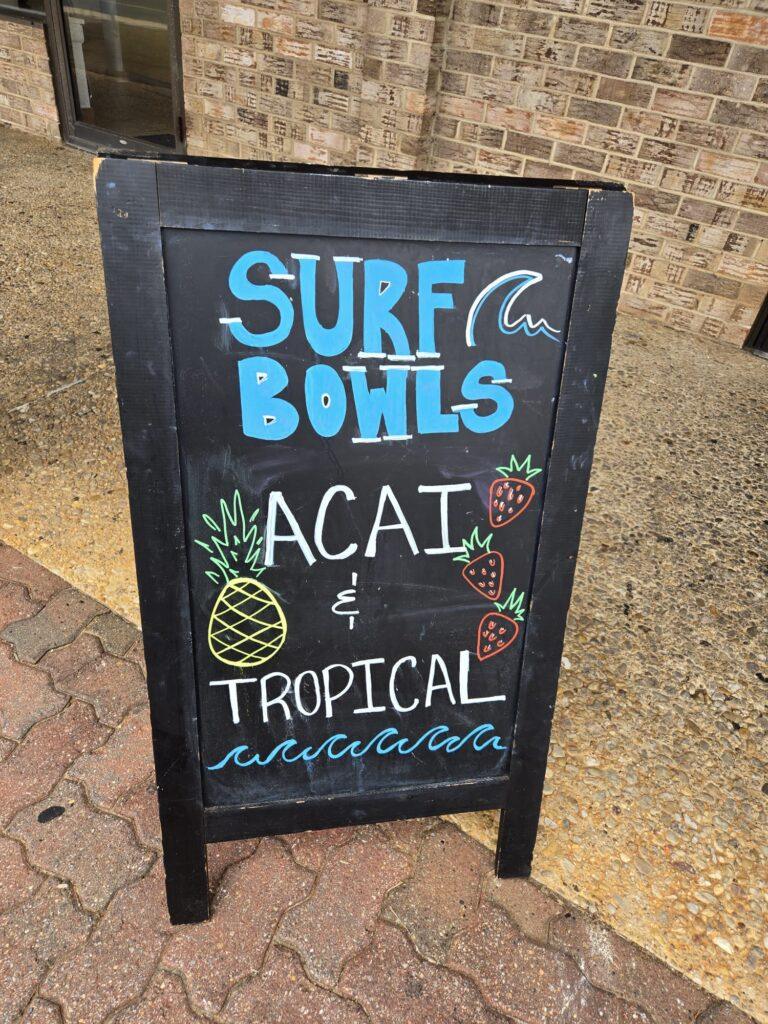 SURF
BOWLS
ACAI
&
TROPICAL